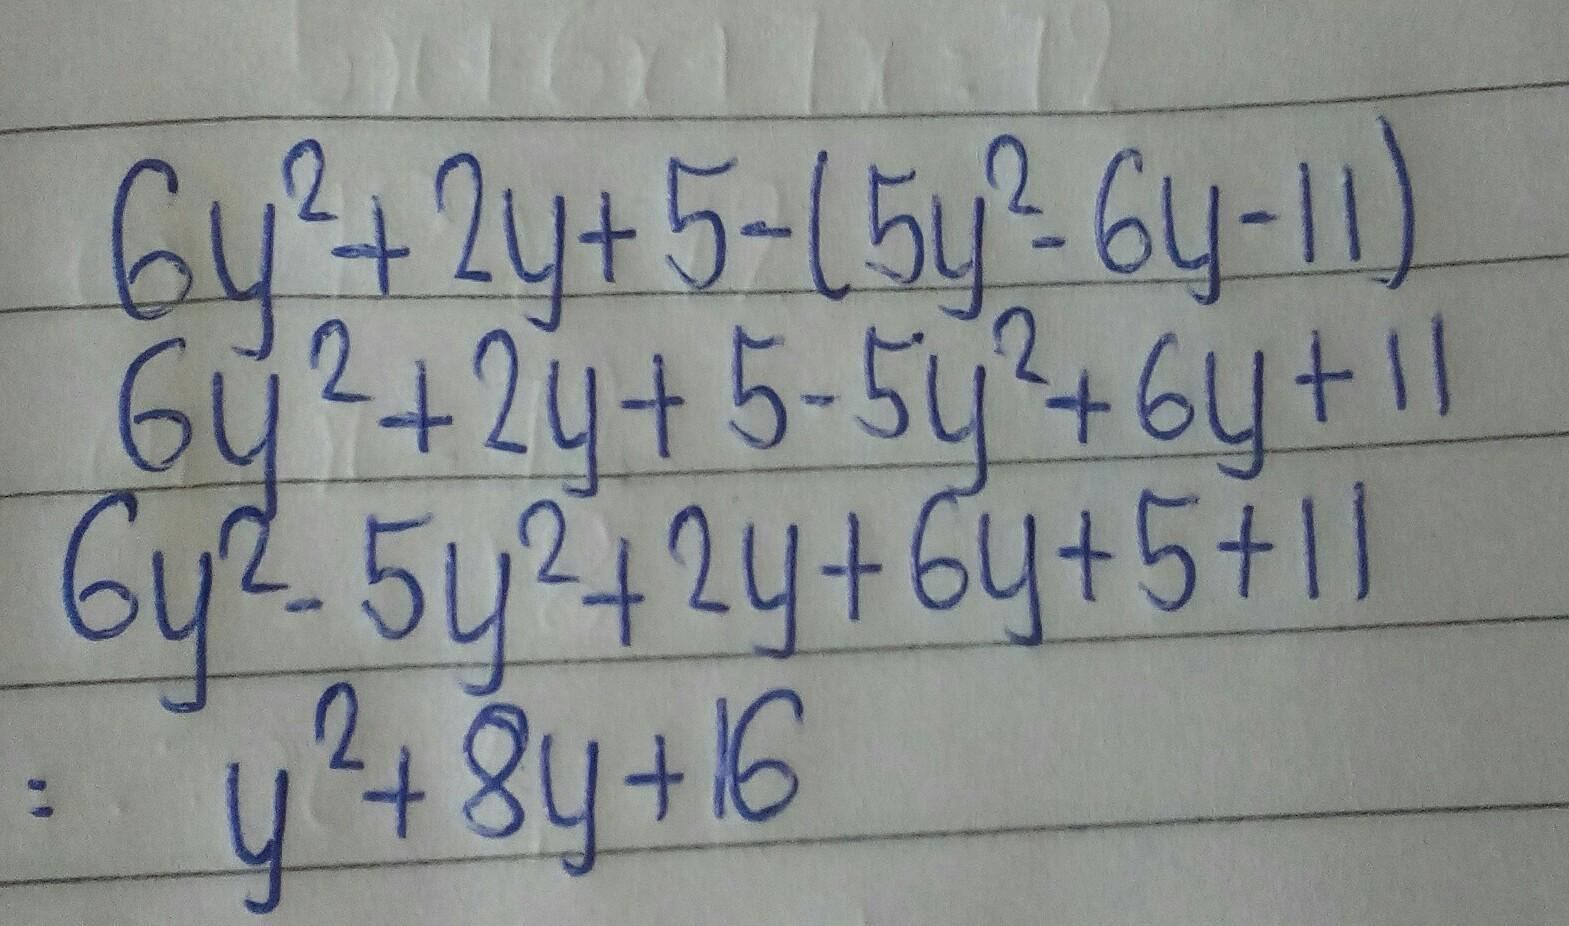 6y²+2y+5-(5y²-6y-11)
6y²+2y+5-5y²+6y+11
6y²-5y²+2y+6y+5+11
= y²+8y+16